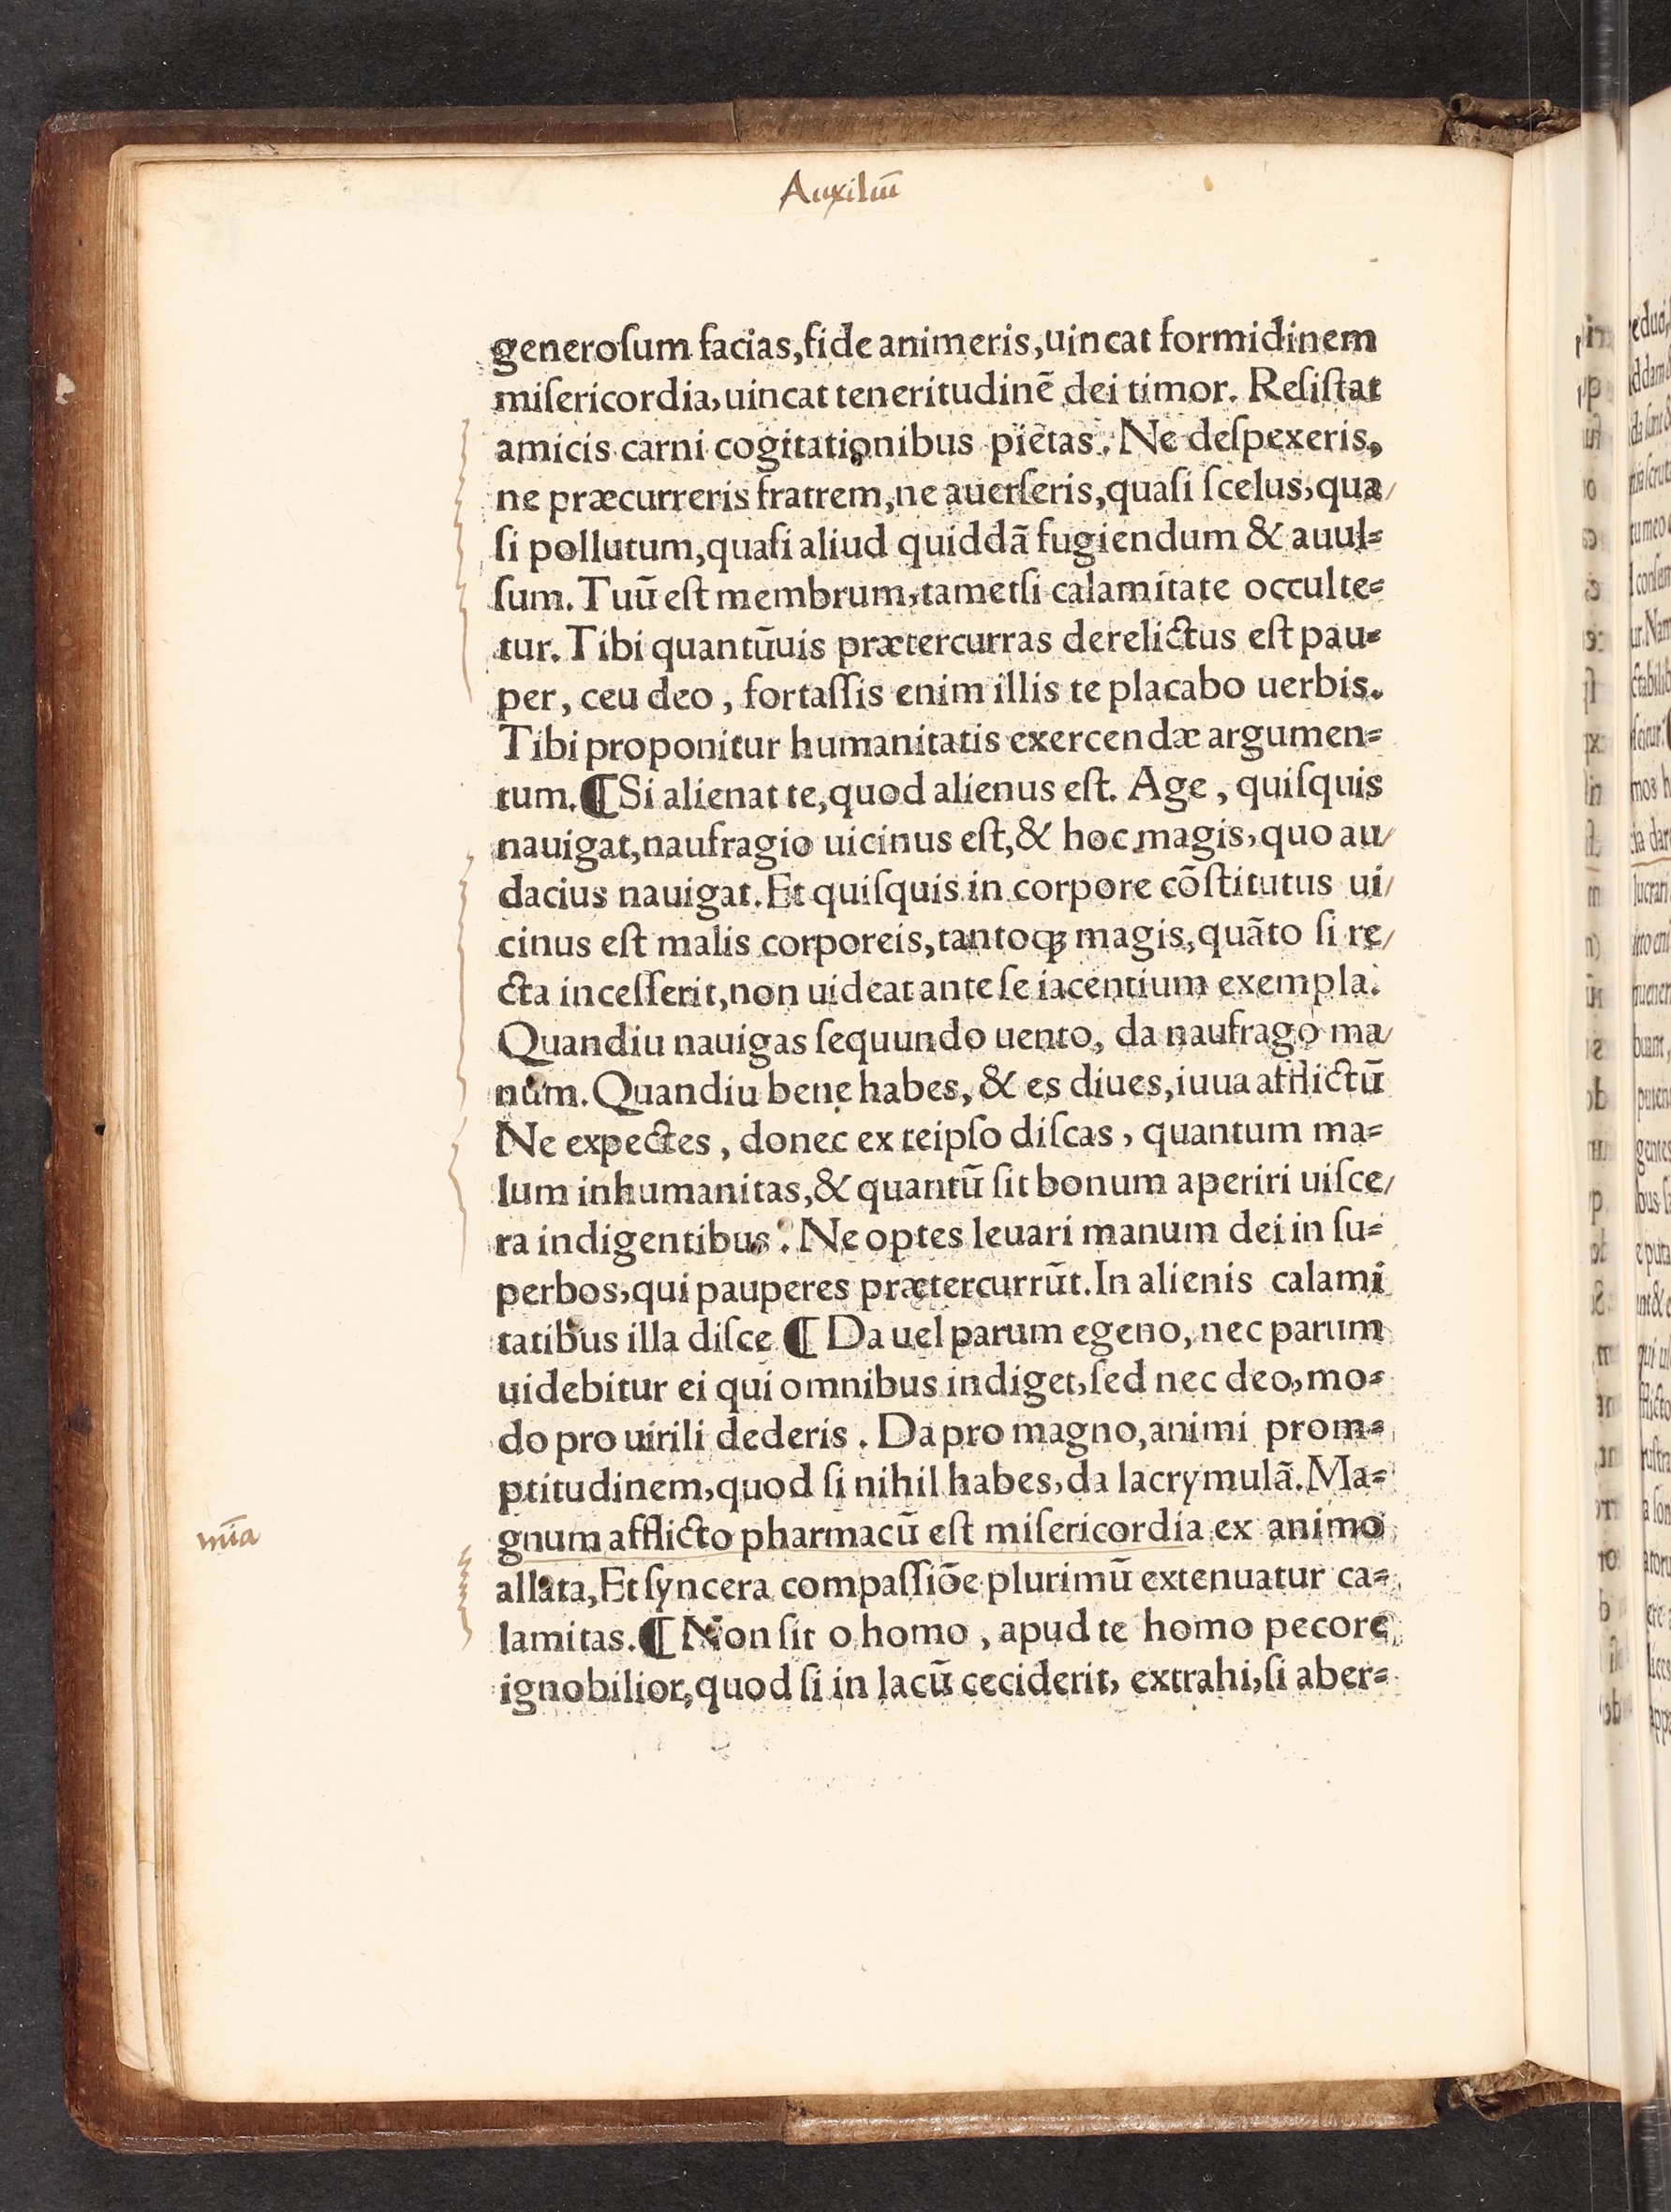 Auxiliū
generoſum facias,fide animeris,uincat formidinem
miſericordia,uincat teneritudinē dei timor. Reſiſtat
amicis carni cogitationibus pietas. Ne deſpexeris,
ne præcurreris fratrem,ne auerſeris,quaſi ſcelus,qua/
ſi pollutum,quaſi aliud quiddā fugiendum & auul=
ſum. Tuū eſt membrum,tametſi calamitate occulte=
tur. Tibi quantūuis prætercurras derelictus eſt pau=
per, ceu deo, fortaſſis enim illis te placabo uerbis.
Tibi proponitur humanitatis exercendæ argumen=
tum.¶Si alienat te,quod alienus eſt. Age, quiſquis
nauigat,naufragio uicinus eſt,& hoc magis,quo au/
dacius nauigat.Et quiſquis in corpore cōſtitutus ui/
cinus eſt malis corporeis,tantoq; magis,quāto ſi re/
cta inceſſerit,non uideat ante ſe iacentium exempla.
Quandiu nauigas ſequundo uento, da naufrago ma/
num.Quandiu bene habes, & es diues,iuua afflictū
Ne expectes, donec ex teipſo diſcas, quantum ma=
lum inhumanitas,& quantū ſit bonum aperiri uiſce/
ra indigentibus. Ne optes leuari manum dei in ſu=
perbos,qui pauperes prætercurrūt.In alienis calami
tatibus illa diſce ¶ Da uel parum egeno, nec parum
uidebitur ei qui omnibus indiget,ſed nec deo,mo=
do pro uirili dederis. Da pro magno,animi prom=
ptitudinem,quod ſi nihil habes,da lacrymulā.Ma=
mīa
gnum afflicto pharmacū eſt miſericordia ex animo
allata,Et ſyncera compaſſiōe plurimū extenuatur ca=
lamitas.¶ Non ſit o homo, apud te homo pecore
ignobilior,quod ſi in lacū ceciderit, extrahi,ſi aber=